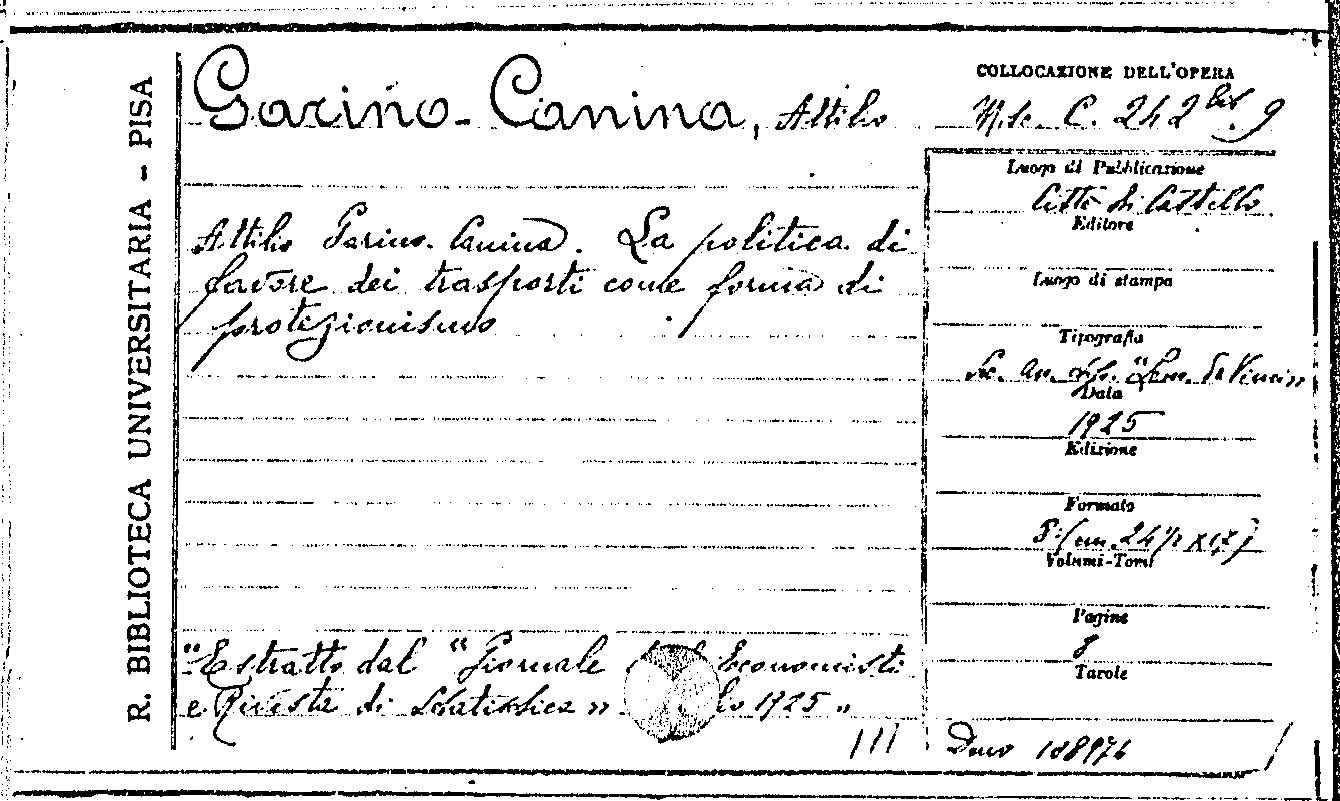 R. BIBLIOTECA UNIVERSITARIA – PISA
Garino-Canina, Attilio
Attilio Garino-Canina. La politica di
favore dei trasporti come forma di
protezionismo
"Estratto dal "Giornale Economisti
e Rivista di Statistica" 1925"
COLLOCAZIONE DELL'OPERA
Misc. C. 242 bis. 9
Luogo di Pubblicazione
Città di Castello
Editore
Luogo di stampa
Tipografia
Soc. An. Tip. "Leon. da Vinci"
Data
1925
Edizione
Formato
8° (cm. 24½ x 17)
Volumi-Tomi
Pagine
8
Tavole
Dono 188976